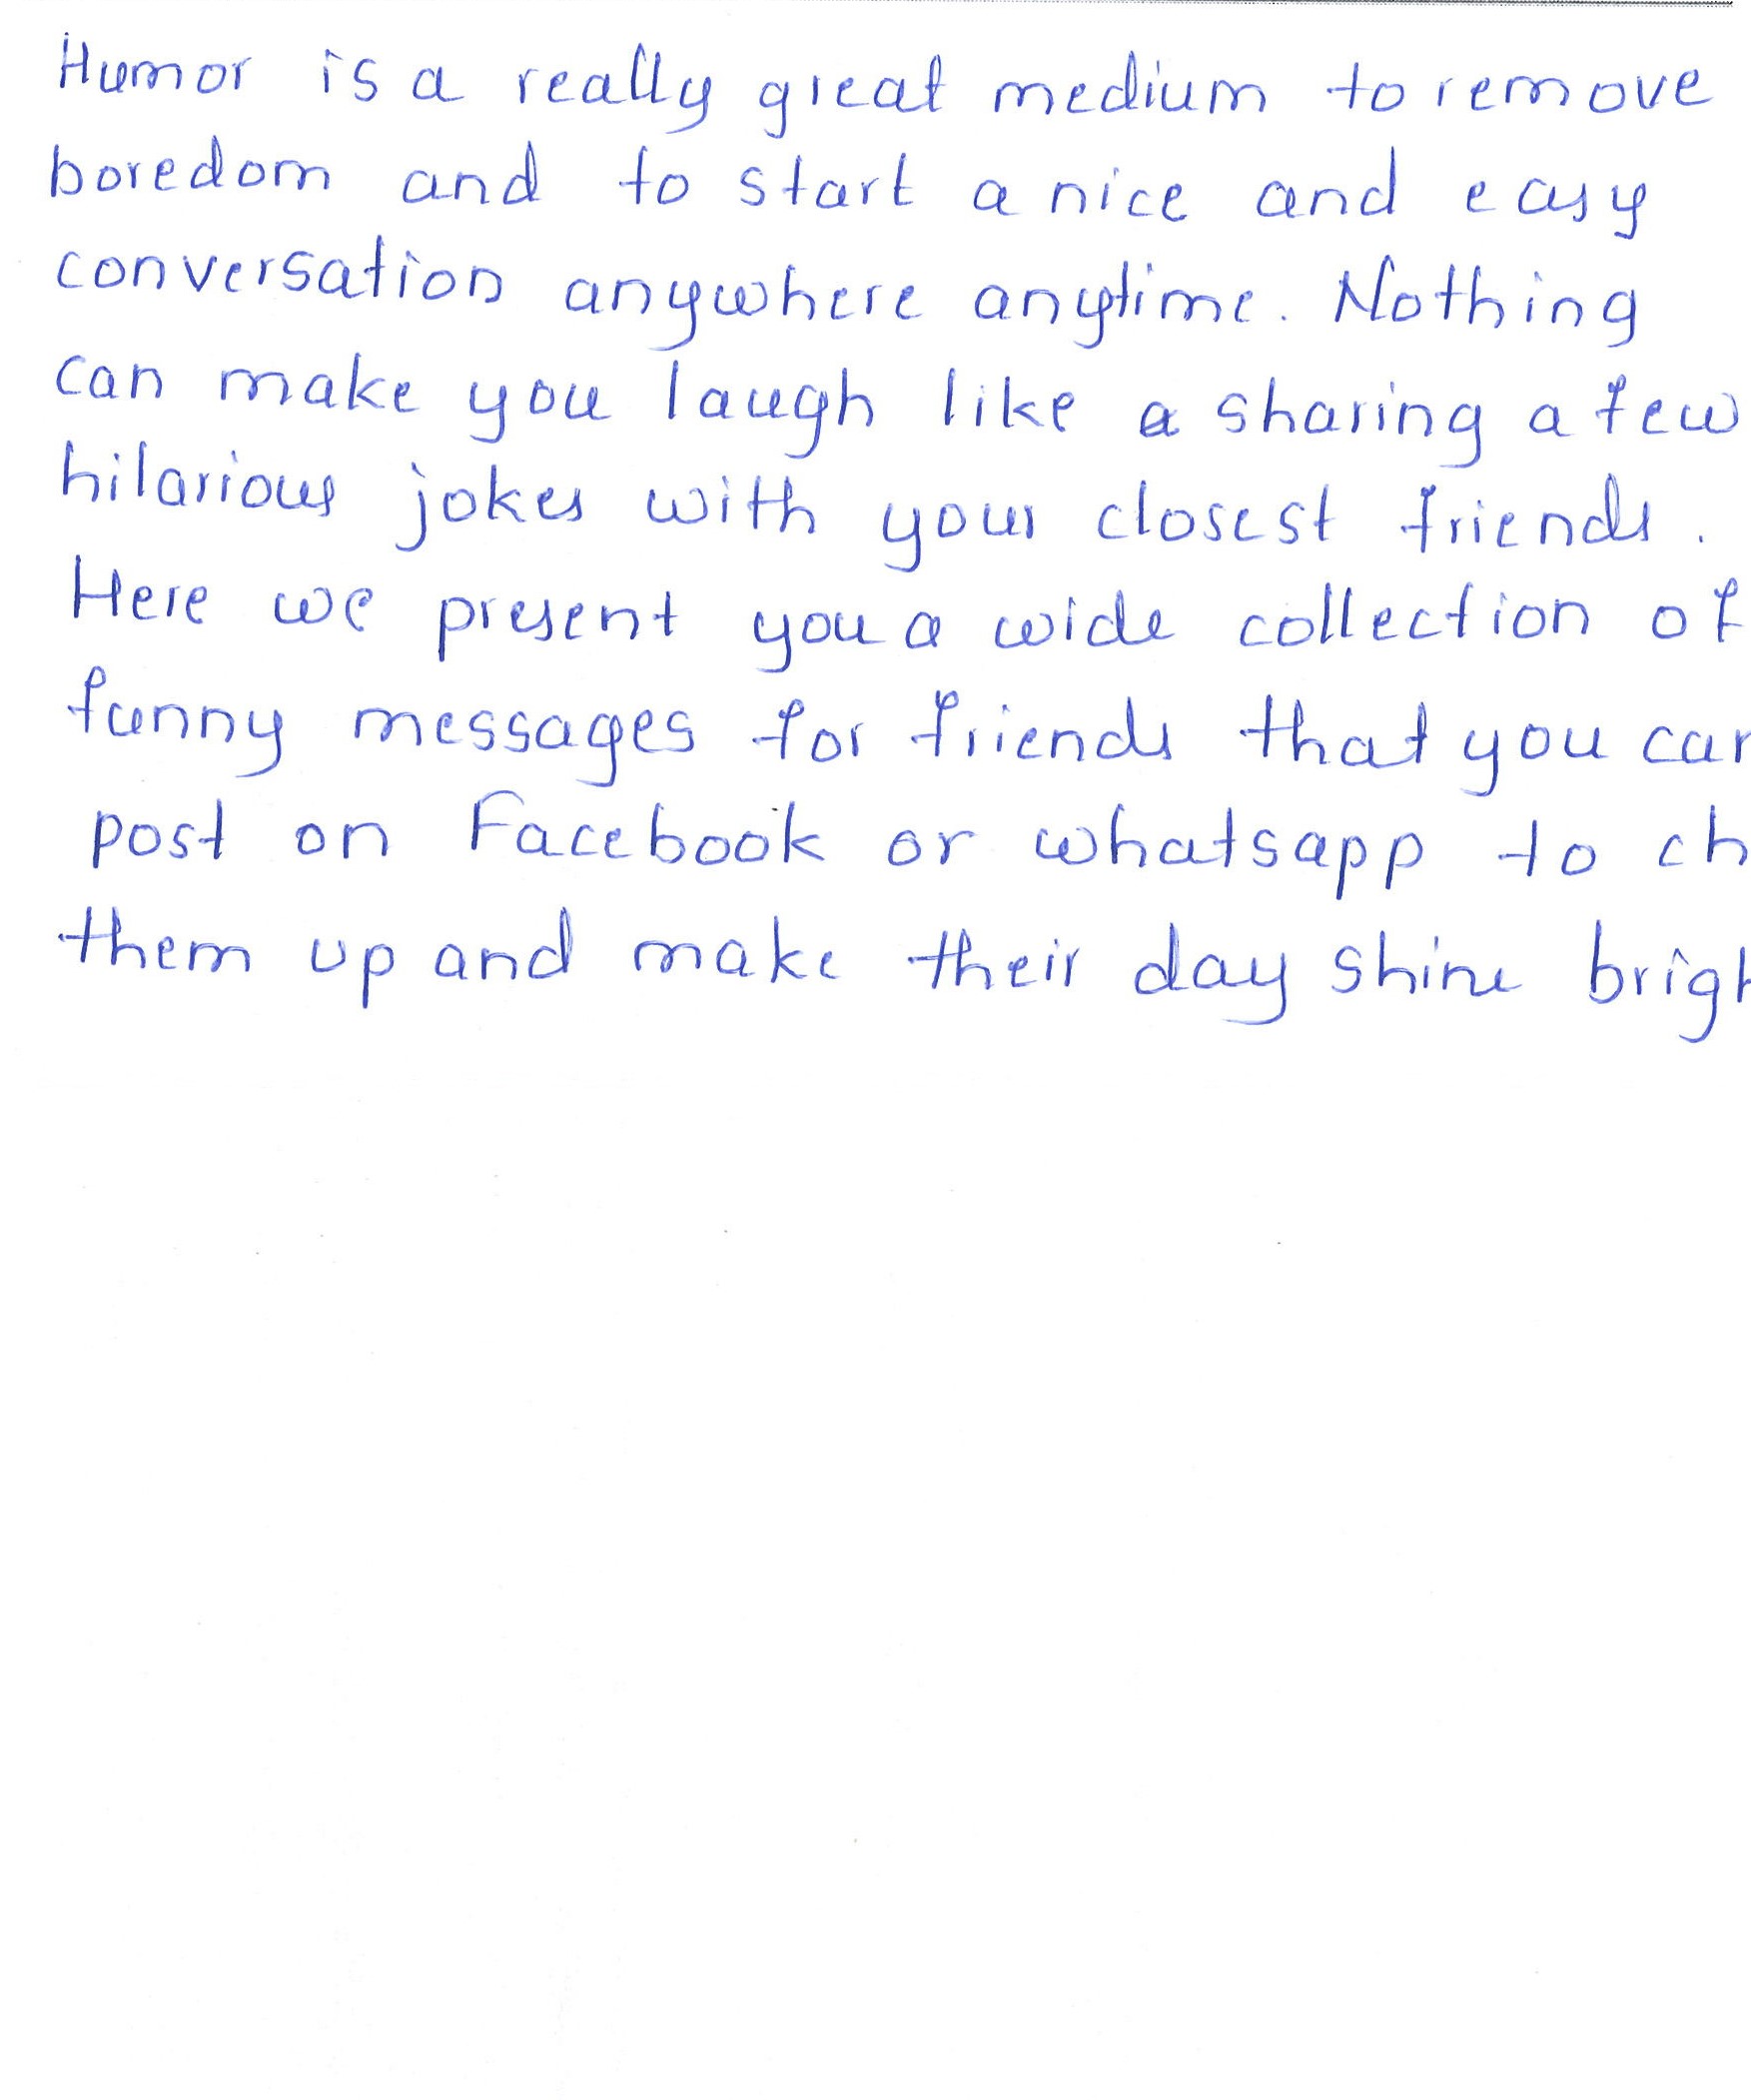 Humor is a really great medium to remove
boredom and to start a nice and easy
conversation anywhere anytime. Nothing
can make you laugh like a sharing a few
hilarious jokes with your closest friends.
Here we present you a wide collection of
funny messages for friends that you can
post on Facebook or whatsapp to ch
them up and make their day shine brigh